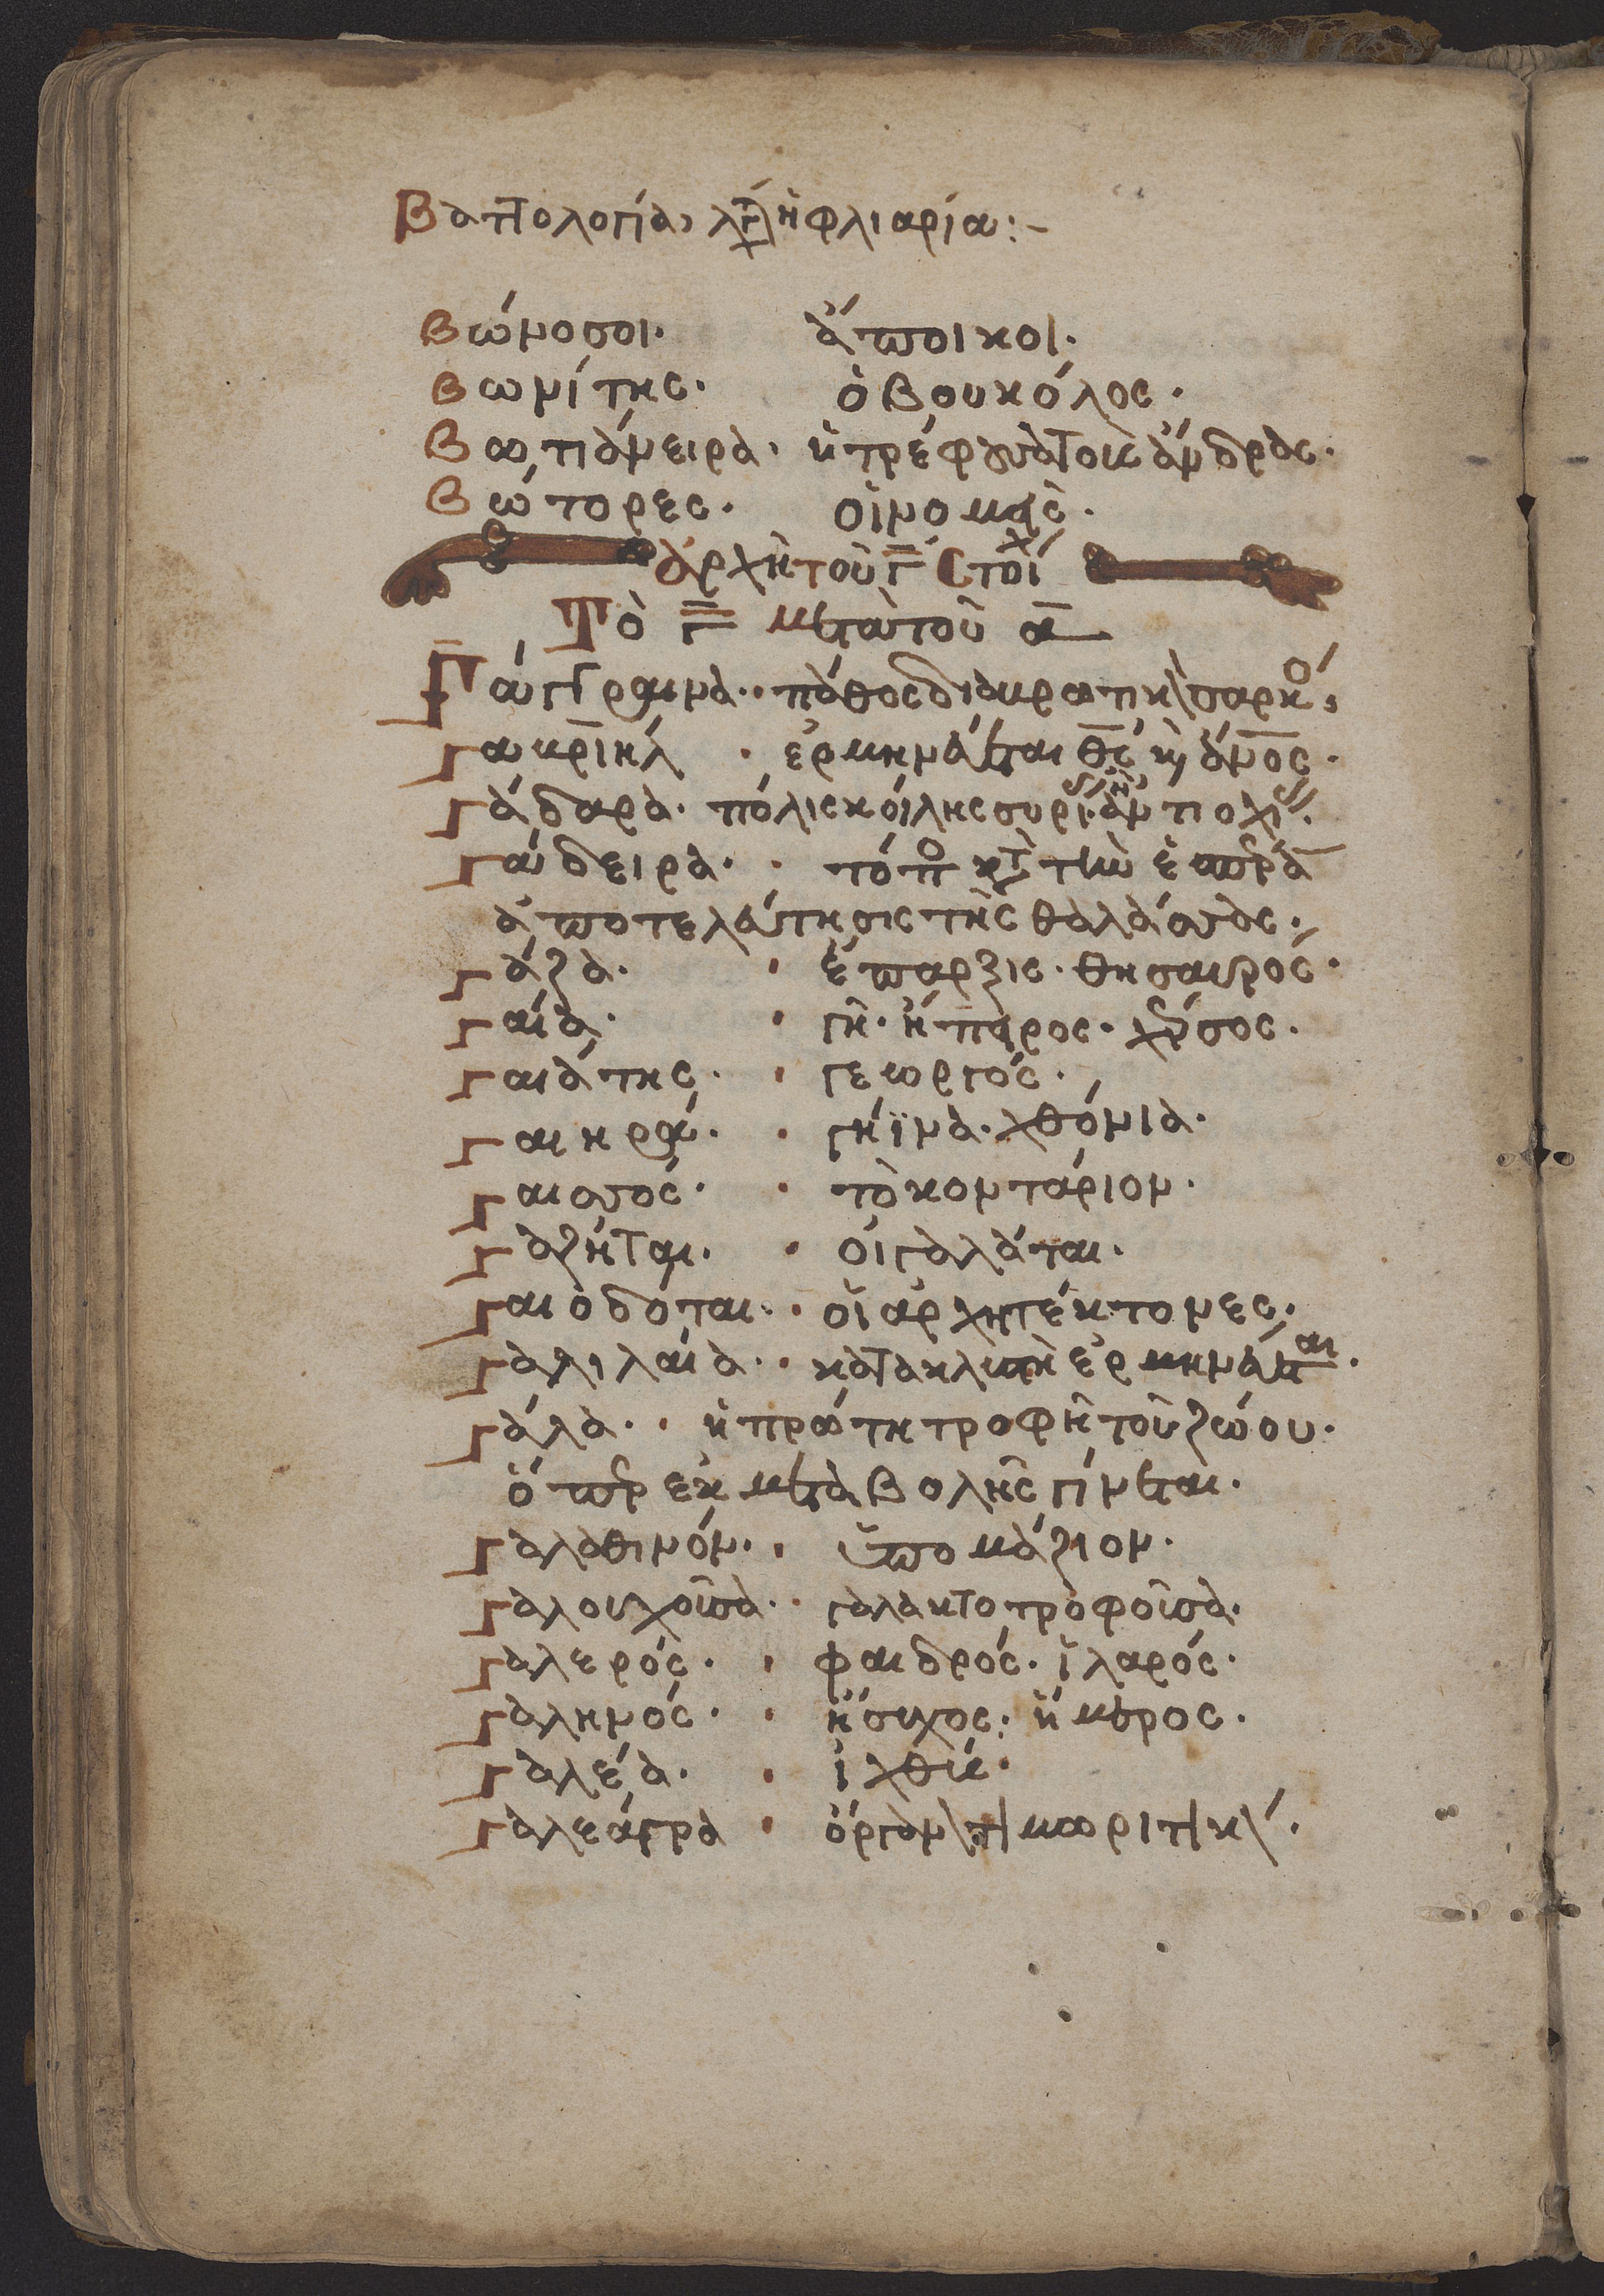 Βαττολογία, ἡ φλιαρία:-
Βώμοσοι. ἄποικοι.
Βωμίτης. ὁ βουκόλος.
Βωτιάνειρα. ἡ τρέφουσα τοὺς ἄνδρας.
Βώτορες. οἱ νομεῖς.
ἀρχὴ τοῦ Γ στοιχ
Τὸ Γ μετὰ τοῦ α
Γάγγραινα. πάθος διαβρωτικὸν σαρκὸς
Γαβριὴλ. ἑρμηνεύεται θς καὶ ἄνος.
Γάδαρα. πόλις κοίλης συρίας.
Γάδειρα. τόπος κατὰ τὴν ἑσπέραν
ἀποτελεύτησις τῆς θαλάσσας.
Γάζα. ἔπαρξις. θησαυρός.
Γαία. γῆ. ἤπειρος. χέρσος.
Γαιάτης. γεωργός.
Γαιηρά. γήϊνα. χθόνια.
Γαισός. τὸ κοντάριον.
Γαζήται. οἱ γαλάται.
Γαιοδόται. οἱ ἀρχητέκτονες.
Γαλιλαία. κατακλιστὴ ἑρμηνεύεται.
Γάλα. ἡ πρώτη τροφὴ τοῦ ζώου.
ὅπερ ἐκ μεταβολῆς γίνεται.
Γαλαθινόν. ὑπομάζιον.
Γαλουχοῦσα. γαλακτοτροφοῦσα.
Γαλερός. φαιδρός. ἱλαρός.
Γαληνός. ἥσυχος. ἥμερος.
Γαλέα. ἰχθύς.
Γαλεάγρα ὄργανον τιμωριτικόν.